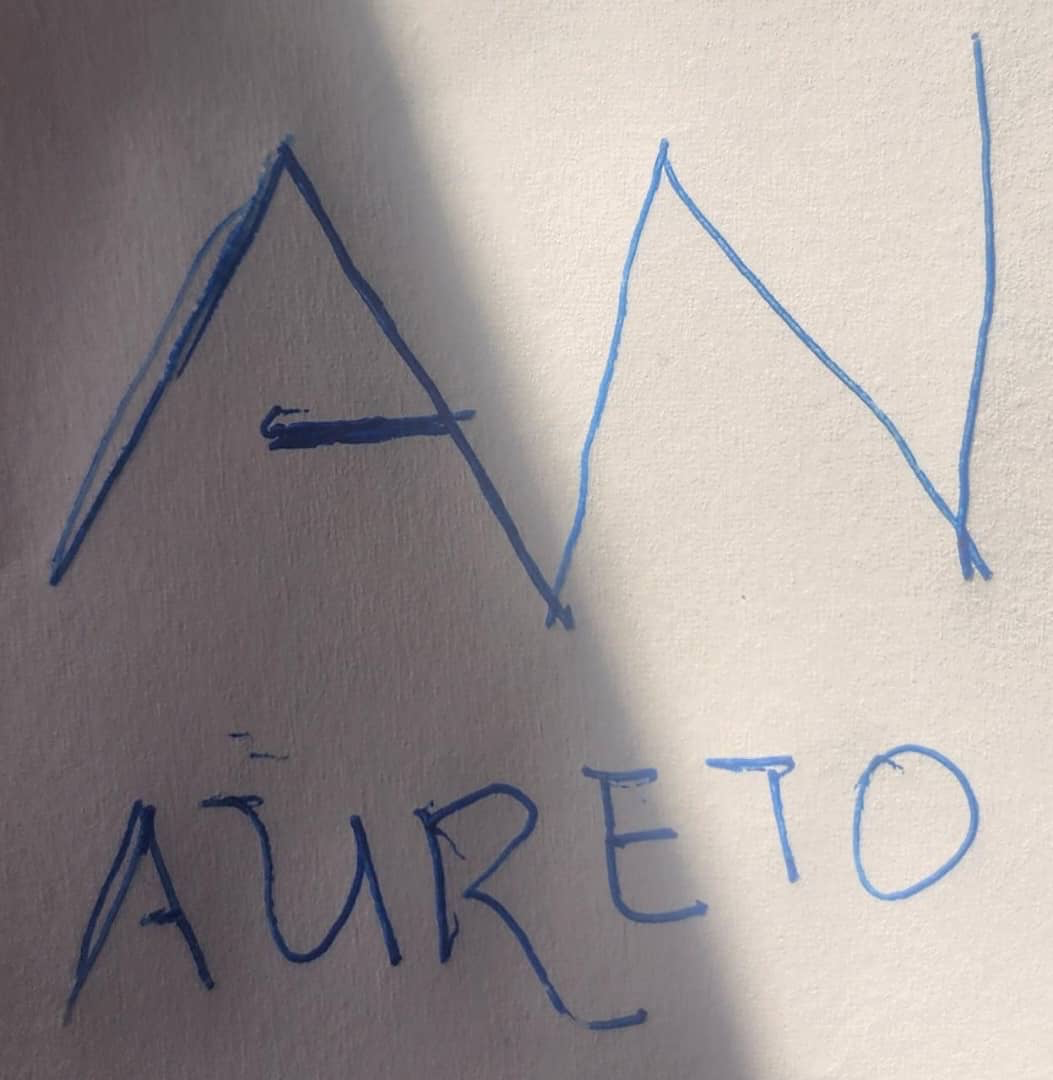 AN
AURETO